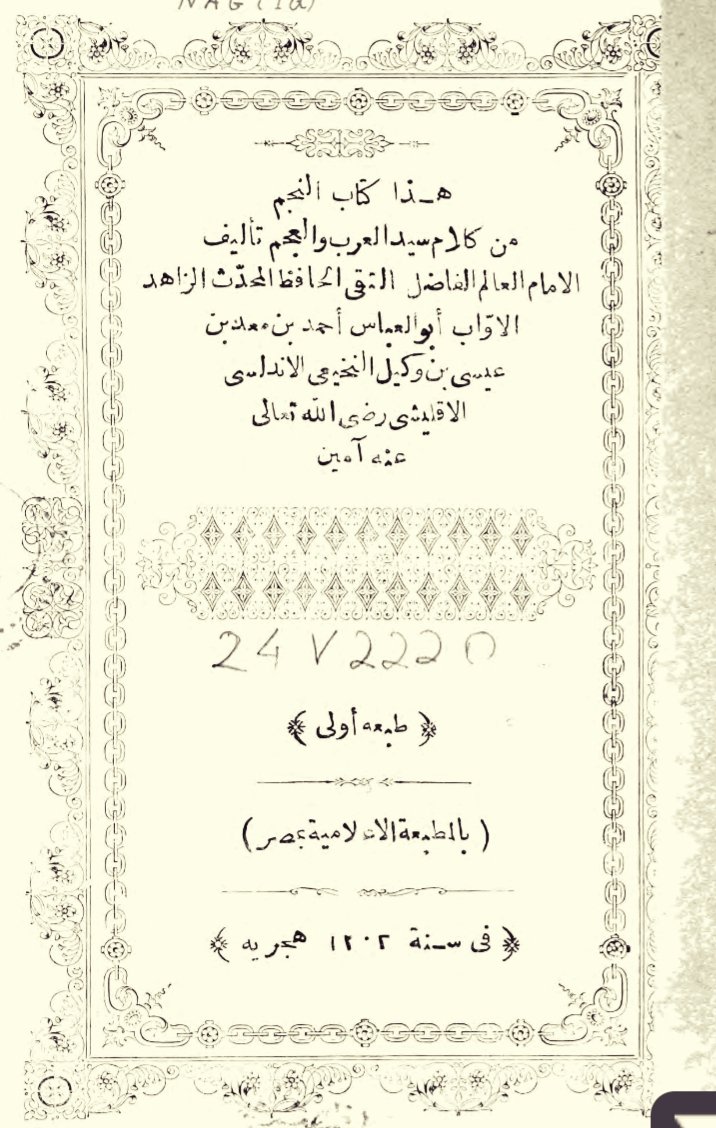 NAG (Ia)
هـذا كتاب النجم
من كلام سيد العرب والعجم تأليف
الامام العالم الفاضل التقى الحافظ المحدّث الزاهد
الاوّاب أبو العباس أحمد بن معد بن
عيسى بن وكيل النخيعى الاندلسى
الاقليشى رضى الله تعالى
عنه آمين
24 V 222
﴿ طبعه أولى ﴾
( بالمطبعة الاعلامية بمصر )
﴿ فى سـنة ١٢٠٢ هجريه ﴾